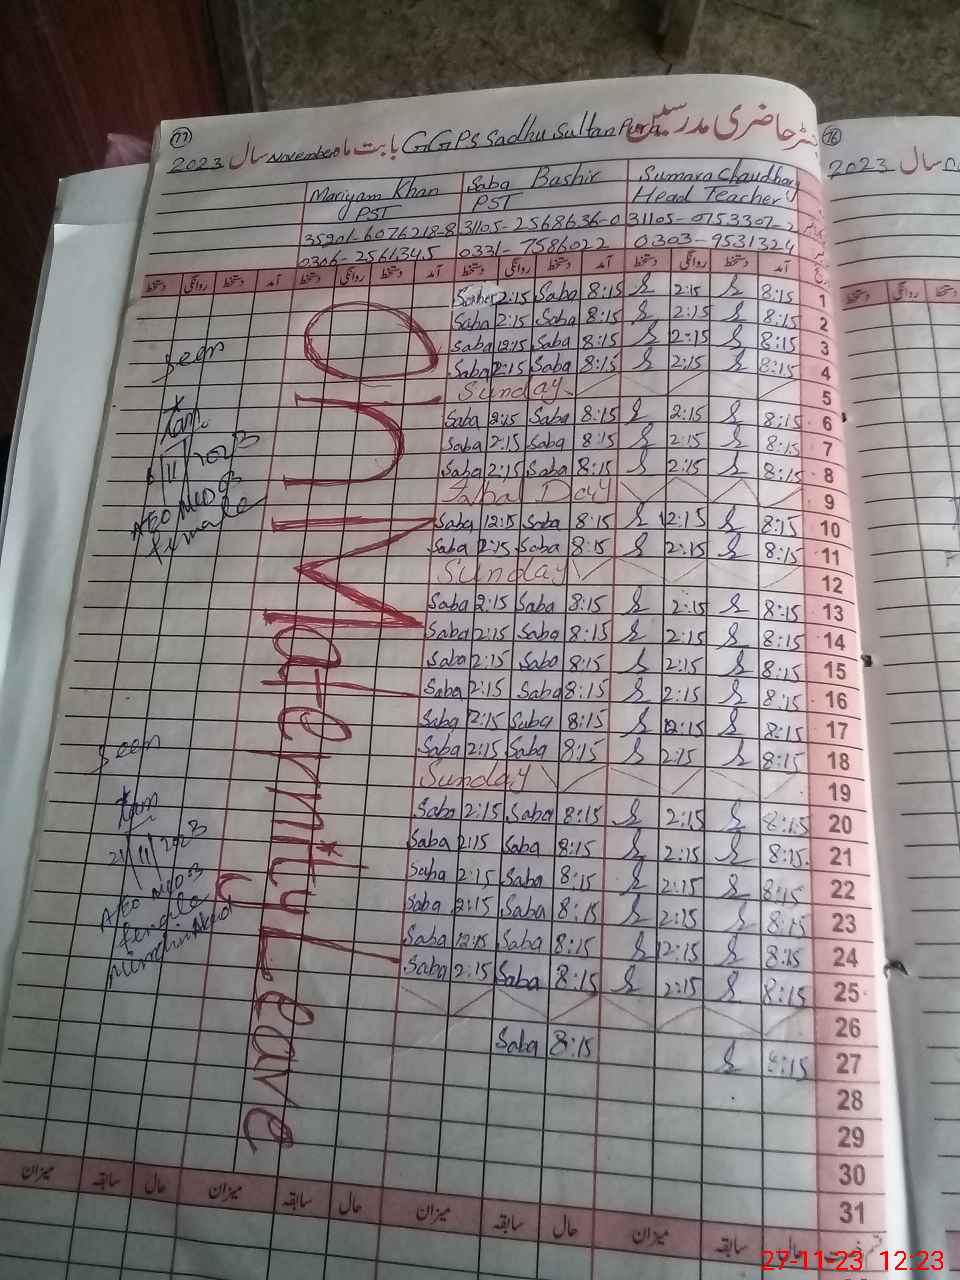 77
رجسٹر حاضری مدرسین GGPS Sadhu Sultan Pura بابت ماہ November سال 2023
Sumara Chaudhary Saba Bashir Mariyam Khan
Head Teacher PST PST
31105-0753307-2 31105-2568636-0 35201-6076218-8
0303-9531324 0331-7586022 0306-2561345
آمد دستخط روانگی دستخط آمد دستخط روانگی دستخط آمد دستخط روانگی دستخط آمد دستخط روانگی دستخط
1 8:15 2:15 8:15 Saba 2:15
2 8:15 2:15 8:15 Saba 2:15 Saba
3 8:15 2:15 8:15 Saba 12:15 Saba
4 8:15 2:15 8:15 Saba 2:15 Saba
5 Sunday
6 8:15 2:15 8:15 Saba 2:15 Saba
7 8:15 2:15 8:15 Saba 2:15 Saba
8 8:15 2:15 8:15 Saba 2:15 Saba
9 Iqbal Day
10 8:15 12:15 8:15 Saba 12:15 Saba
11 8:15 2:15 8:15 Saba 2:15 Saba
12 Sunday
13 8:15 2:15 8:15 Saba 2:15 Saba
14 8:15 2:15 8:15 Saba 2:15 Saba
15 8:15 2:15 8:15 Saba 2:15 Saba
16 8:15 2:15 8:15 Saba 2:15 Saba
17 8:15 12:15 8:15 Saba 2:15 Saba
18 8:15 2:15 8:15 Saba 2:15 Saba
19 Sunday
20 8:15 2:15 8:15 Saba 2:15 Saba
21 8:15 2:15 8:15 Saba 2:15 Saba
22 8:15 2:15 8:15 Saba 2:15 Saba
23 8:15 2:15 8:15 Saba 2:15 Saba
24 8:15 12:15 8:15 Saba 12:15 Saba
25 8:15 2:15 8:15 Saba 2:15 Saba
26
27 8:15 8:15 Saba
28
29
30
31
On Maternity Leave
Seen
11 2023
AEO
female
Seen
21 11 2023
AEO
female
حال سابقہ میزان حال سابقہ میزان حال سابقہ میزان حال سابقہ میزان
76
سال 2023
دستخط روانگی دستخط
27-11-23 12:23